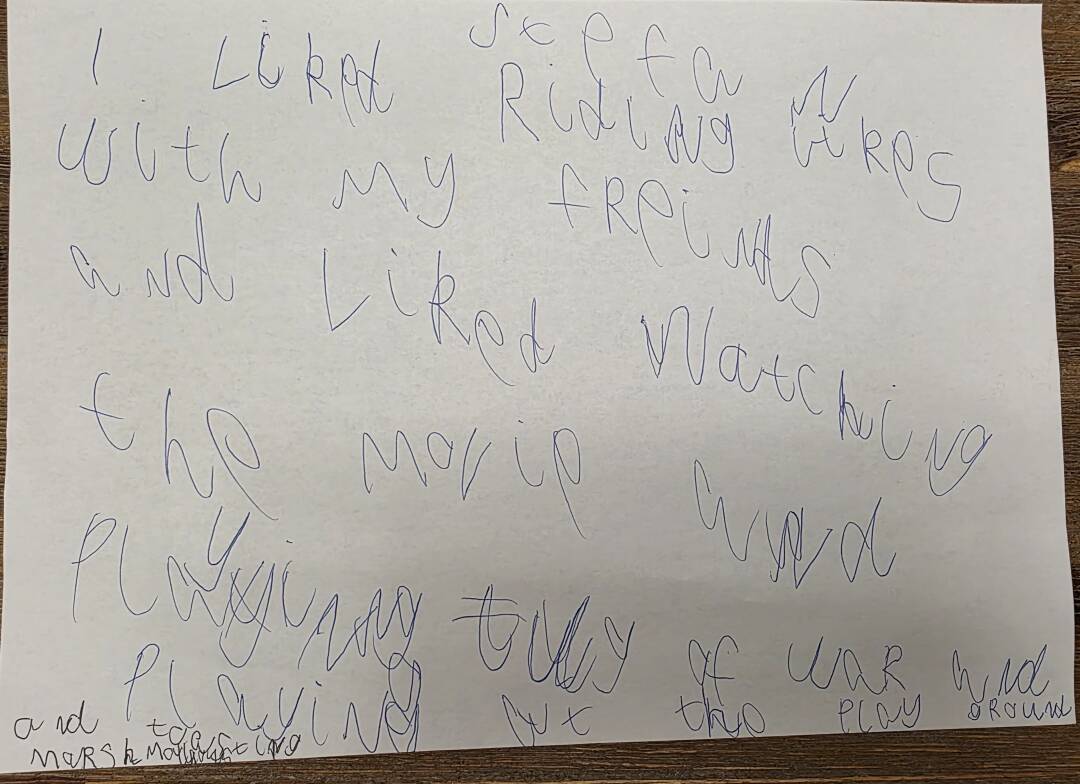 I Liked Stefan
Riding Bikes
with my freinds
and Liked Watching
the movie and
Playing tug of war and
Playing at the Play around
and
marshmallow